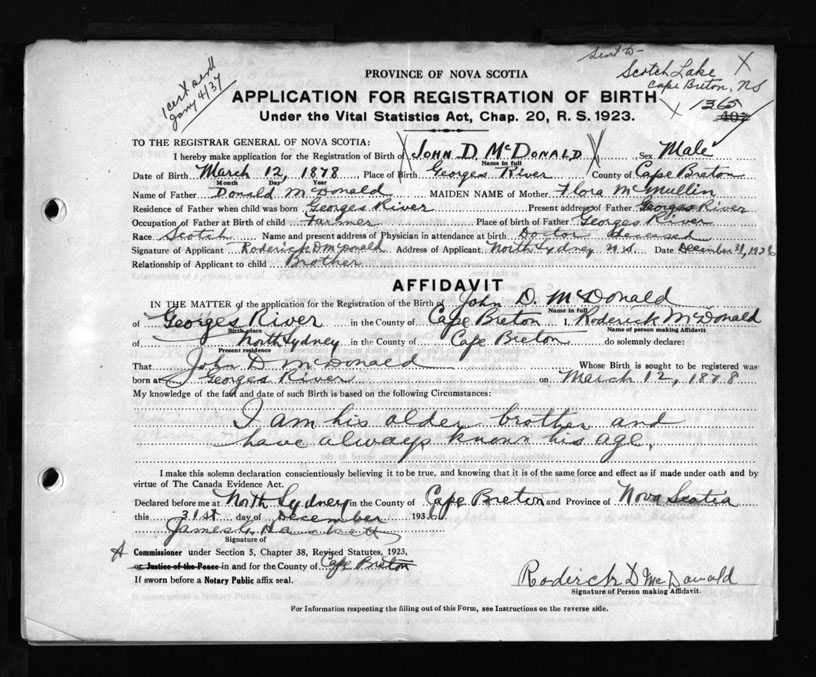 Sent to
Scotch Lake X
Cape Breton, NS
1 cert sent
Jany 4/37
PROVINCE OF NOVA SCOTIA
APPLICATION FOR REGISTRATION OF BIRTH X 1365
Under the Vital Statistics Act, Chap. 20, R. S. 1923. 402
TO THE REGISTRAR GENERAL OF NOVA SCOTIA:
I hereby make application for the Registration of Birth of John D. McDonald Sex Male
Name in full
Date of Birth March 12, 1878 Place of Birth Georges River County of Cape Breton
Month Day Year
Name of Father Donald McDonald MAIDEN NAME of Mother Flora McMullin
Residence of Father when child was born Georges River Present address of Father Georges River
Occupation of Father at Birth of child Farmer Place of birth of Father Georges River
Race Scotch Name and present address of Physician in attendance at birth Doctor deceased
Signature of Applicant Roderick D McDonald Address of Applicant North Sydney N.S. Date December 31, 1936
Relationship of Applicant to child Brother
AFFIDAVIT
IN THE MATTER of the application for the Registration of the Birth of John D. McDonald
Name in full
of Georges River in the County of Cape Breton I, Roderick McDonald
Birth-place Name of person making Affidavit
of North Sydney in the County of Cape Breton do solemnly declare:
Present residence
That John D McDonald Whose Birth is sought to be registered was
born at Georges River on March 12, 1878
My knowledge of the fact and date of such Birth is based on the following Circumstances:
I am his older brother and
have always known his age.
I make this solemn declaration conscientiously believing it to be true, and knowing that it is of the same force and effect as if made under oath and by
virtue of The Canada Evidence Act.
Declared before me at North Sydney in the County of Cape Breton and Province of Nova Scotia
this 31st day of December 1936
James G.
Signature of
A Commissioner under Section 5, Chapter 38, Revised Statutes, 1923,
or Justice of the Peace in and for the County of Cape Breton
If sworn before a Notary Public affix seal.
Roderick D McDonald
Signature of Person making Affidavit.
For Information respecting the filling out of this Form, see Instructions on the reverse side.